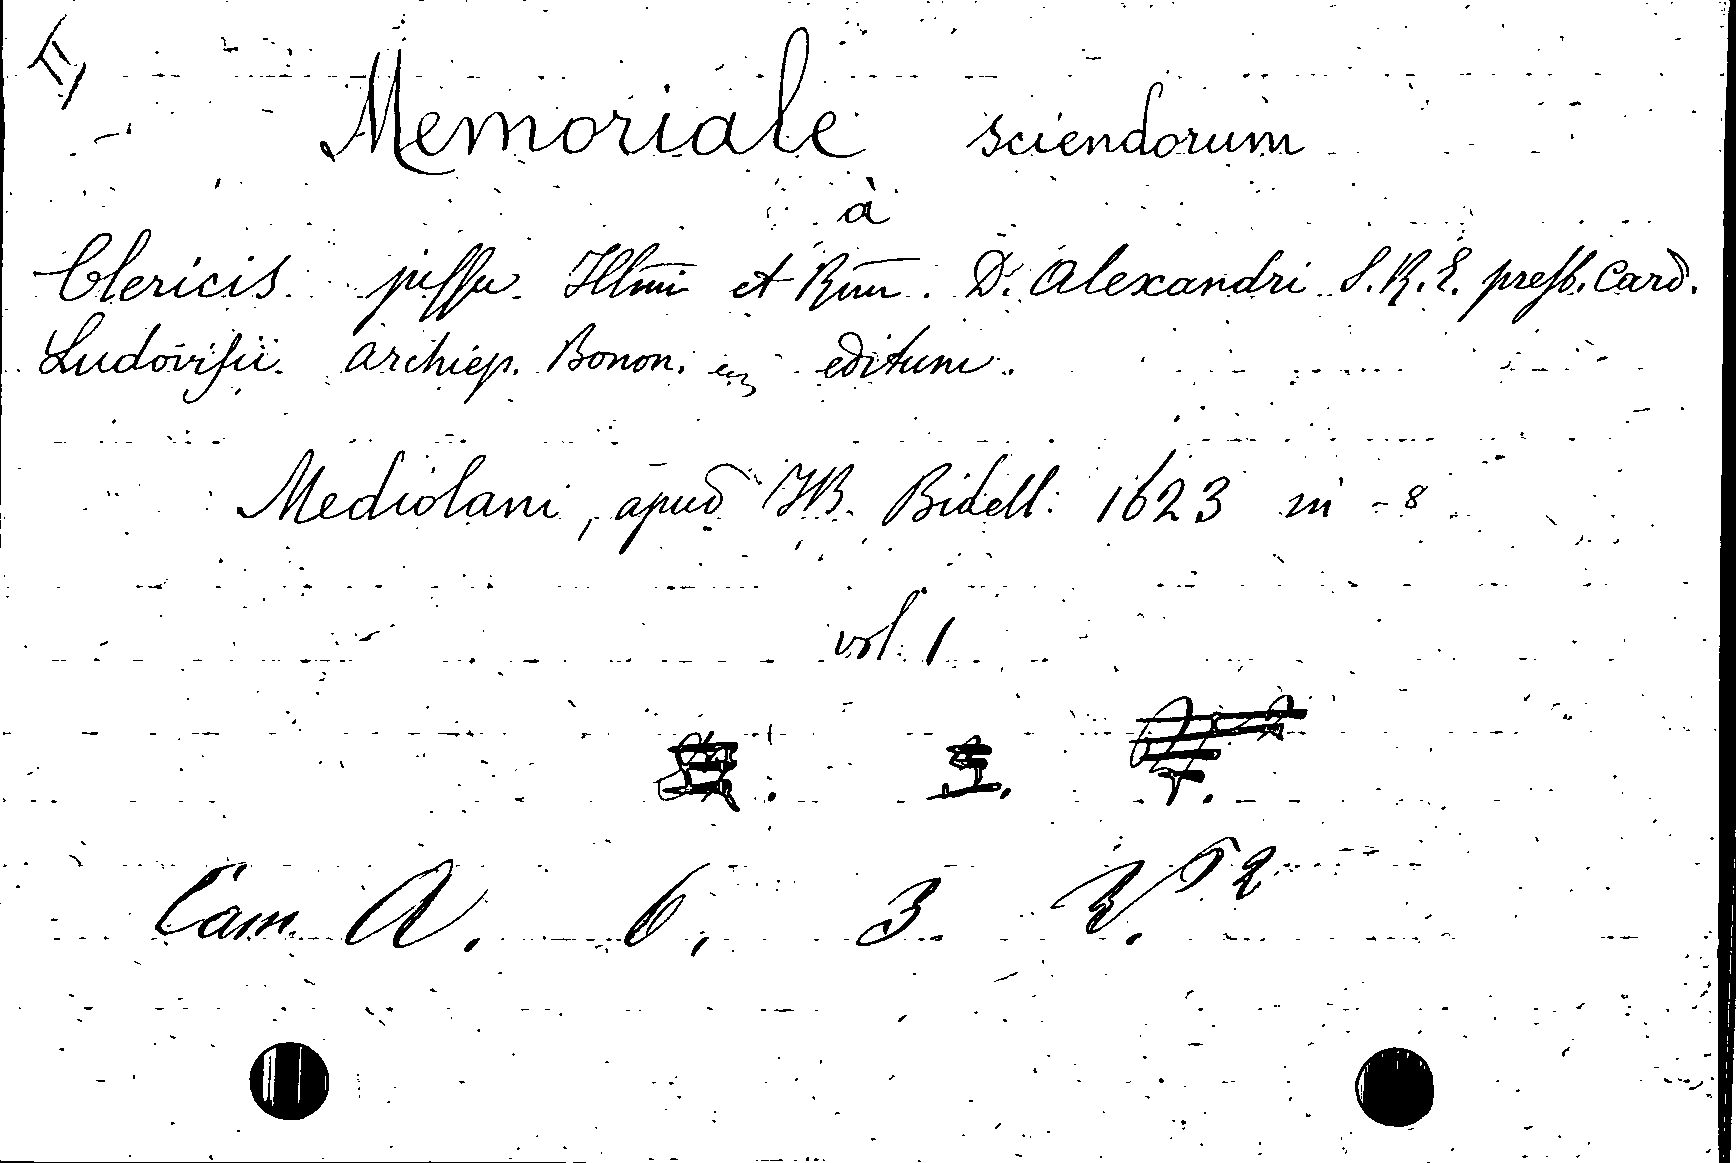 Memoriale sciendorum
à
Clericis jussu Illmi et Rmi. D. Alexandri S. R. E. presb. Card.
Ludovisii archiep. Bonon. editum.
Mediolani, apud JB. Bidell: 1623 in - 8
vol. 1
Cam A. 6. 3. 3. 52